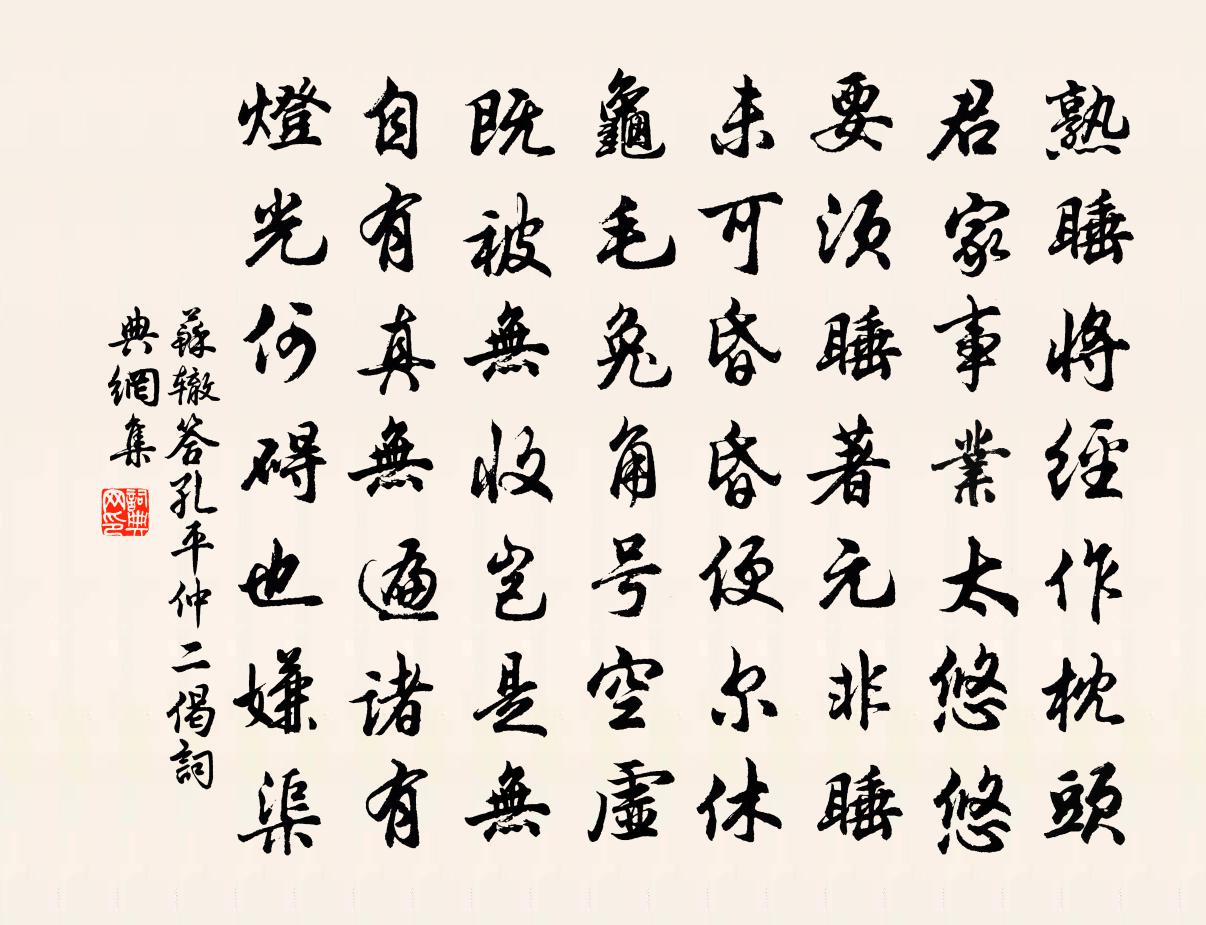 熟睡將經作枕頭
君家事業太悠悠
要須睡著元非睡
未可昏昏便尔休
龜毛兔角号空虛
既被無收豈是無
自有真無遍諸有
燈光何碍也嫌渠
蘇轍答孔平仲二偈詞
典網集
詞典
网印